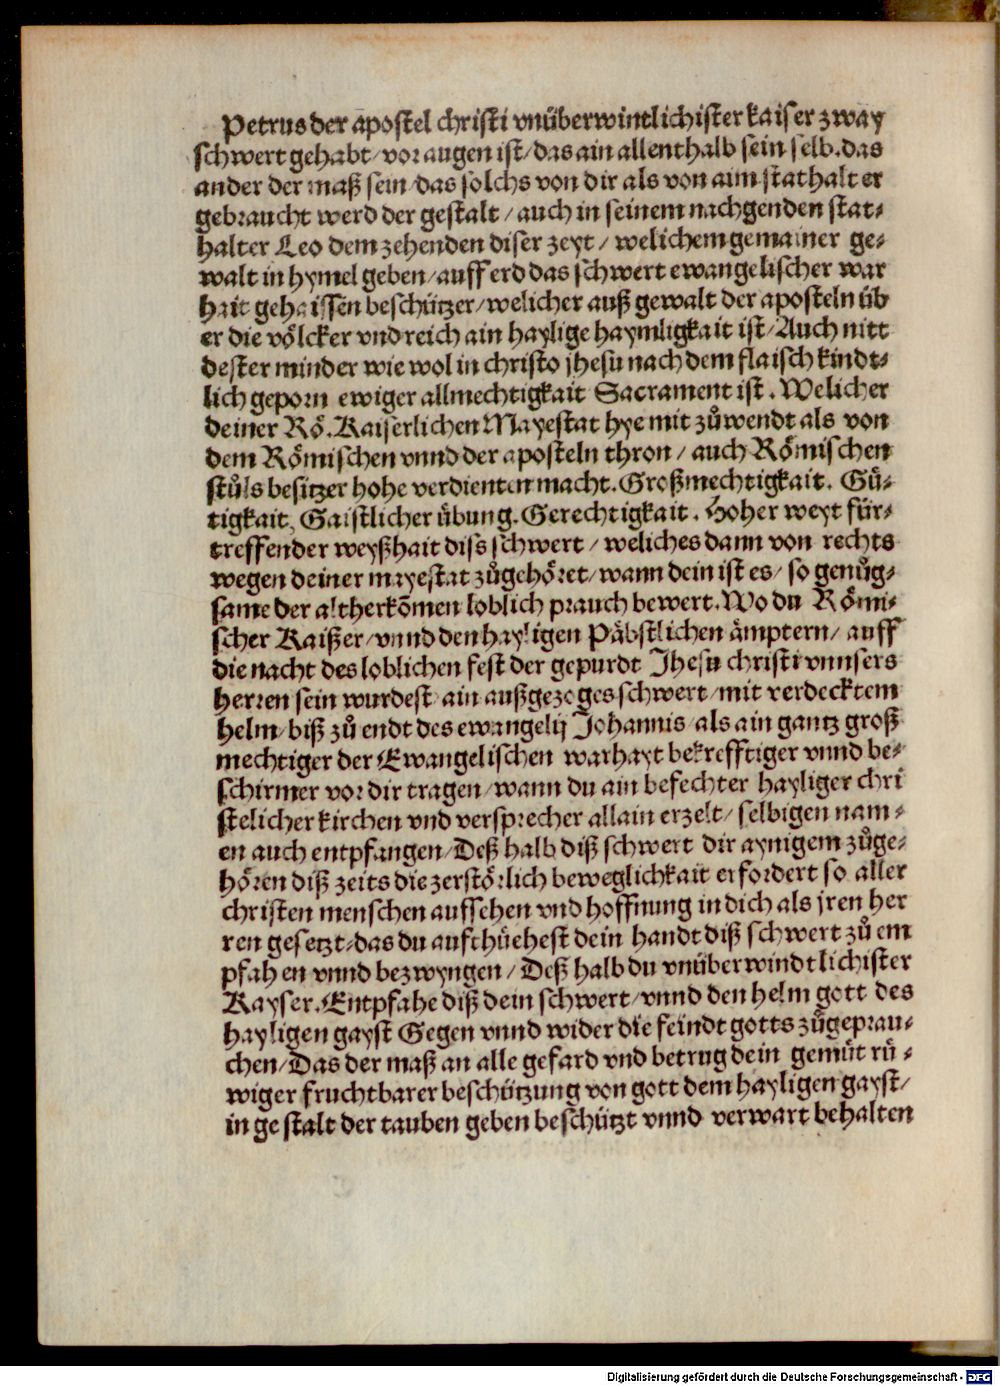 Petrus der apostel christi vnüberwintlichister kaiser zway
schwert gehabt/vor augen ist/das ain allenthalb sein selb.das
ander der maß sein/das solchs von dir als von aim stathalter
gebraucht werd der gestalt/auch in seinem nachgenden stat⸗
halter Leo dem zehenden diser zeyt/welichem gemainer ge⸗
walt in hymel geben/auff erd das schwert ewangelischer war
hait gehaissen beschützer/welicher auß gewalt der aposteln üb
er die völcker vnd reich ain haylige haymligkait ist/Auch nitt
dester minder wie wol in christo jhesu nach dem flaisch kindt⸗
lich geporn ewiger allmechtigkait Sacrament ist. Welicher
deiner Rö.Kaiserlichen Mayestat hye mit zůwendt als von
dem Römischen vnnd der aposteln thron/auch Römischen
stůls besitzer hohe verdienten macht.Großmechtigkait. Gü⸗
tigkait, Gaistlicher übung.Gerechtigkait. Hoher weyt für⸗
treffender weyßhait diss schwert/weliches dann von rechts
wegen deiner mayestat zůgehöret/wann dein ist es/so genůg⸗
same der altherkōmen loblich prauch bewert.Wo du Römi⸗
scher Kaißer/vnnd den hayligen Päbstlichen ämptern/auff
die nacht des loblichen fest der gepurdt Jhesu christi vnnsers
herren sein wurdest ain außgezoges schwert/mit verdecktem
helm/biß zů endt des ewangelij Johannis/als ain gantz groß
mechtiger der Ewangelischen warhayt bekrefftiger vnnd be⸗
schirmer vor dir tragen/wann du ain befechter hayliger chri
stelicher kirchen vnd versprecher allain erzelt/selbigen nam⸗
en auch entpfangen/Deß halb diß schwert dir aynigem zůge⸗
hören diß zeits die zerstörlich beweglichkait erfordert so aller
christen menschen aufsehen vnd hoffnung in dich als jren her
ren gesetzt⸗das du aufthüehest dein handt diß schwert zů em
pfahen vnnd bezwyngen/Deß halb du vnüberwindtlichister
Kayser.Entpfahe diß dein schwert/vnnd den helm gott des
hayligen gayst Gegen vnnd wider die feindt gotts zůgeprau⸗
chen/Das der maß an alle gefard vnd betrug dein gemüt rü⸗
wiger fruchtbarer beschützung von gott dem hayligen gayst/
in gestalt der tauben geben beschützt vnnd verwart behalten
Digitalisierung gefördert durch die Deutsche Forschungsgemeinschaft - DFG